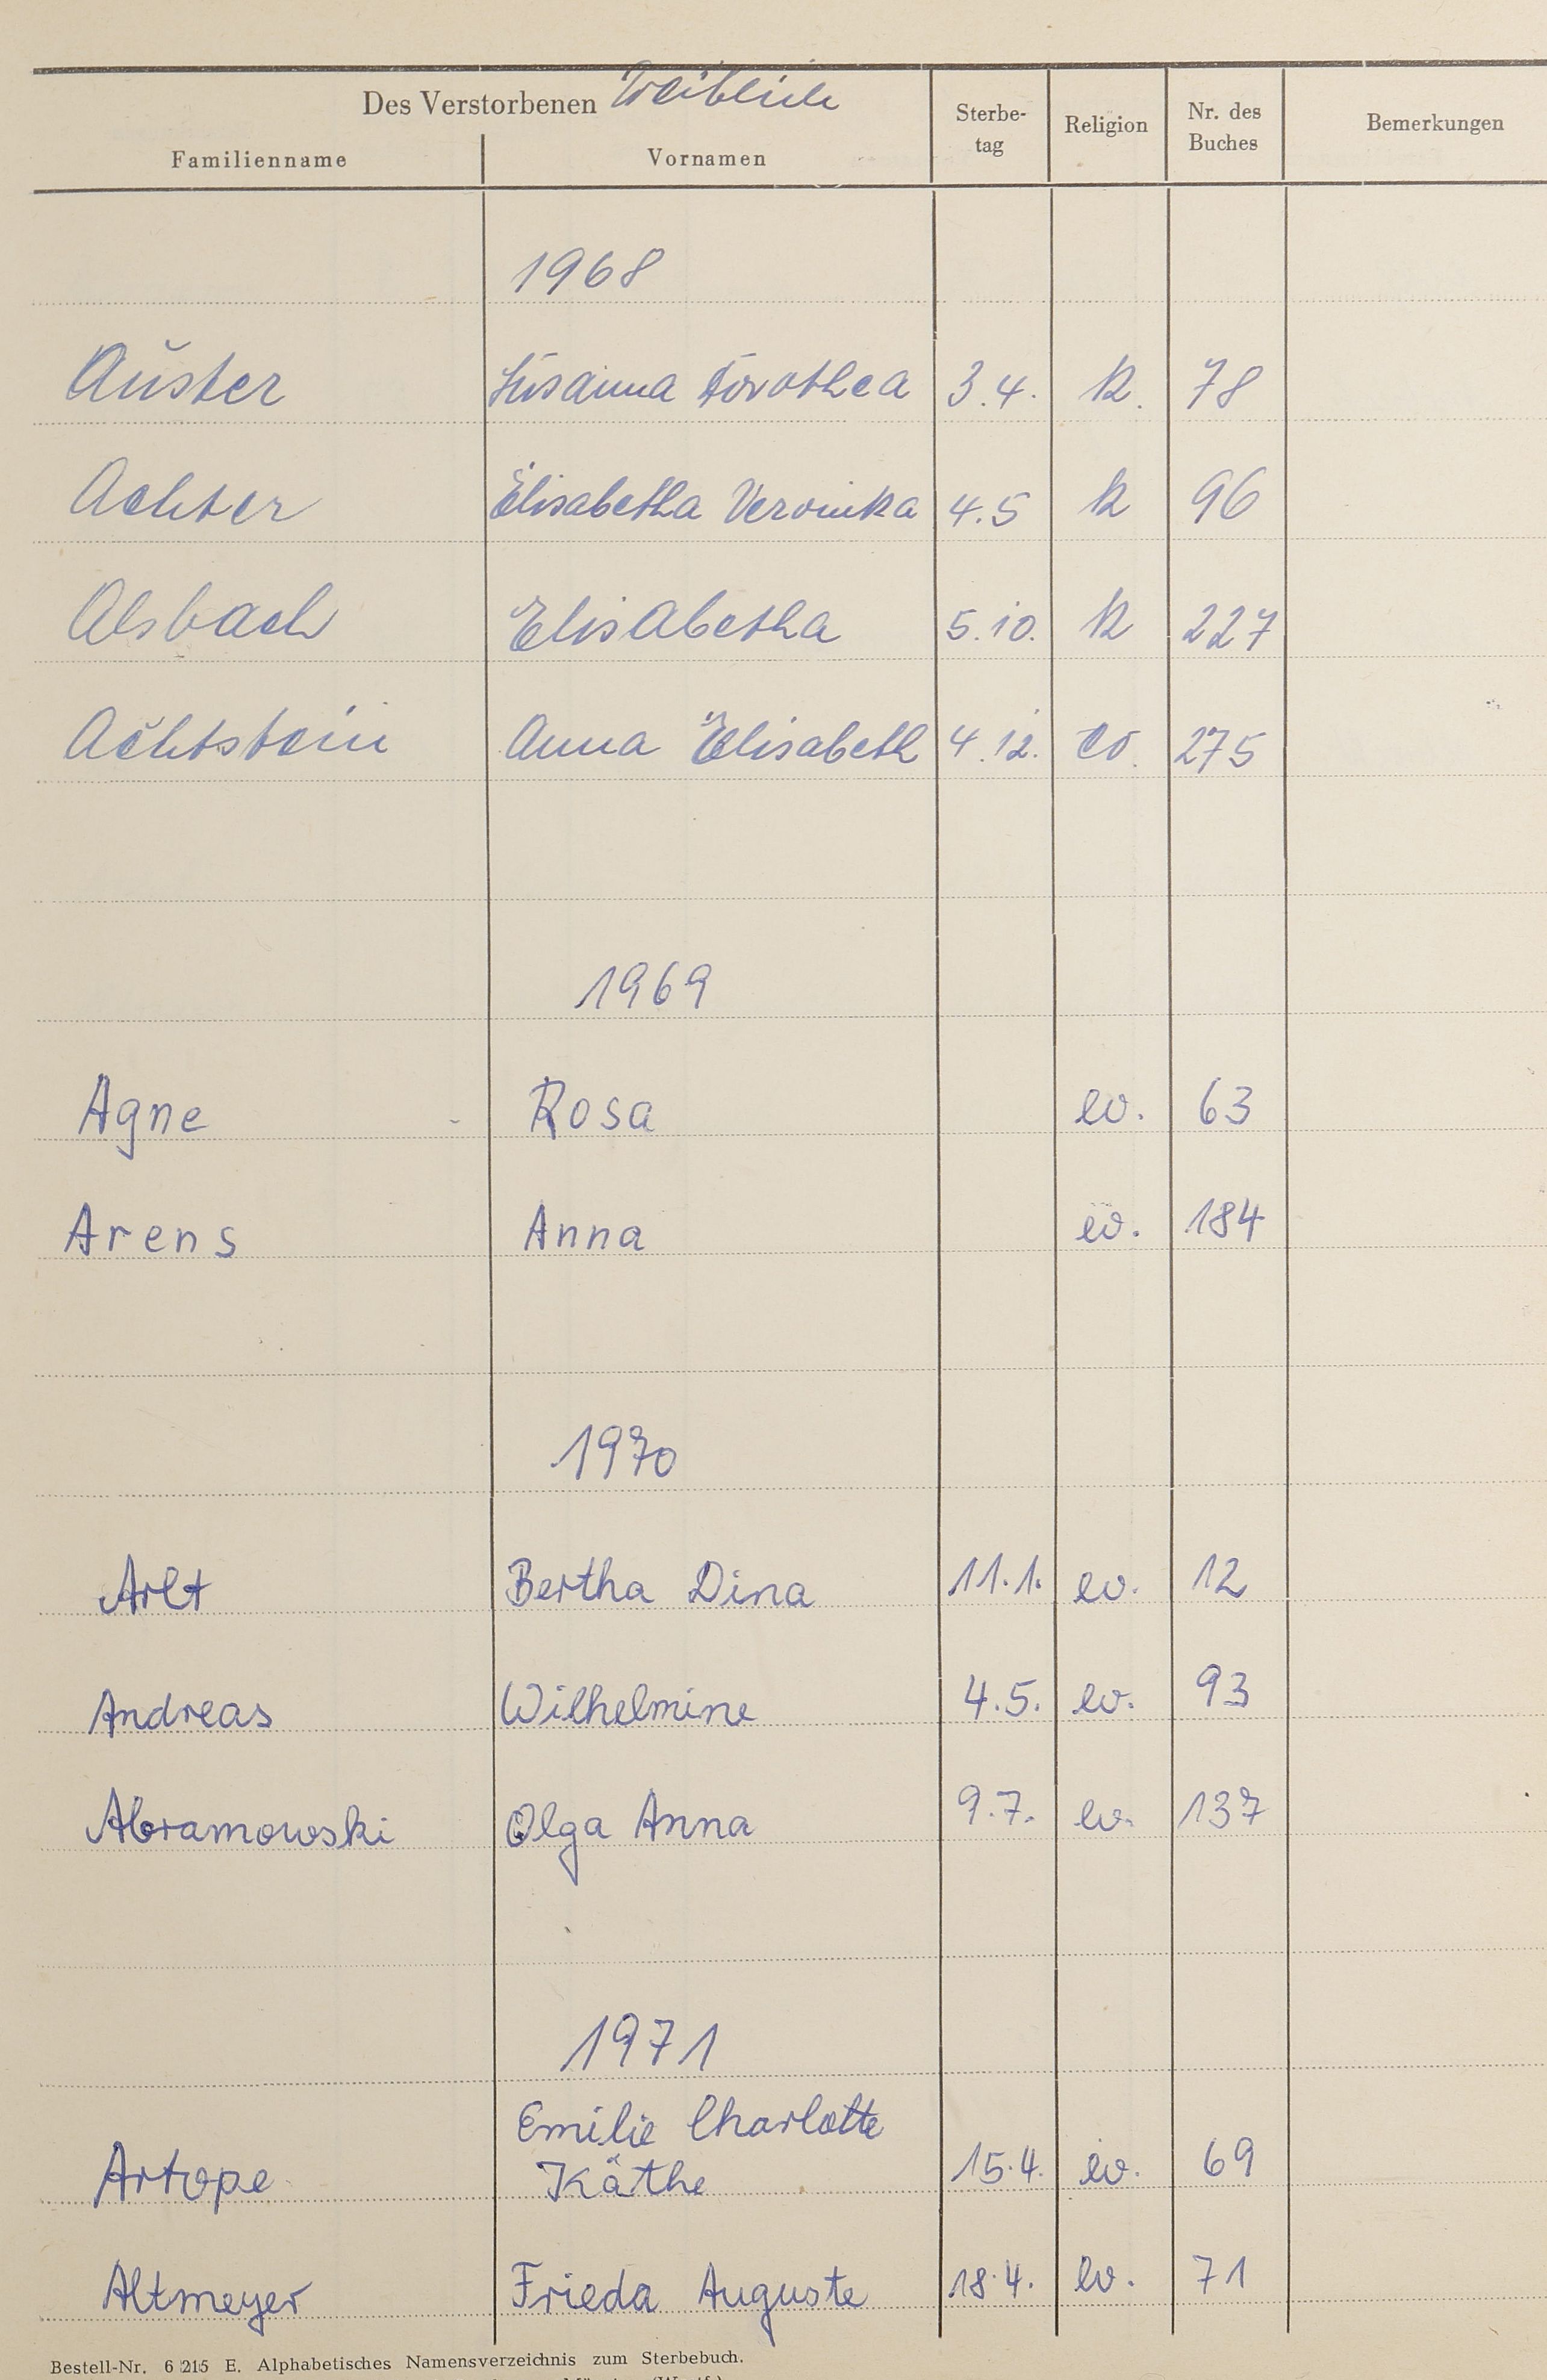 Des Verstorbenen Weiblich
Familienname Vornamen Sterbe-tag Religion Nr. des Buches Bemerkungen
1968
Auster Susanna Dorothea 3.4. k. 78
Achter Elisabetha Veronika 4.5 k 96
Alsbach Elisabetha 5.10. k 227
Achtstein Anna Elisabeth 4.12. ev. 275
1969
Agne Rosa ev. 63
Arens Anna ev. 184
1970
Arlt Bertha Dina 11.1. ev. 12
Andreas Wilhelmine 4.5. ev. 93
Abramowski Olga Anna 9.7. ev. 137
1971
Emilie Charlotte
Artope Käthe 15.4. ev. 69
Altmeyer Frieda Auguste 18.4. ev. 71
Bestell-Nr. 6 215 E. Alphabetisches Namensverzeichnis zum Sterbebuch.